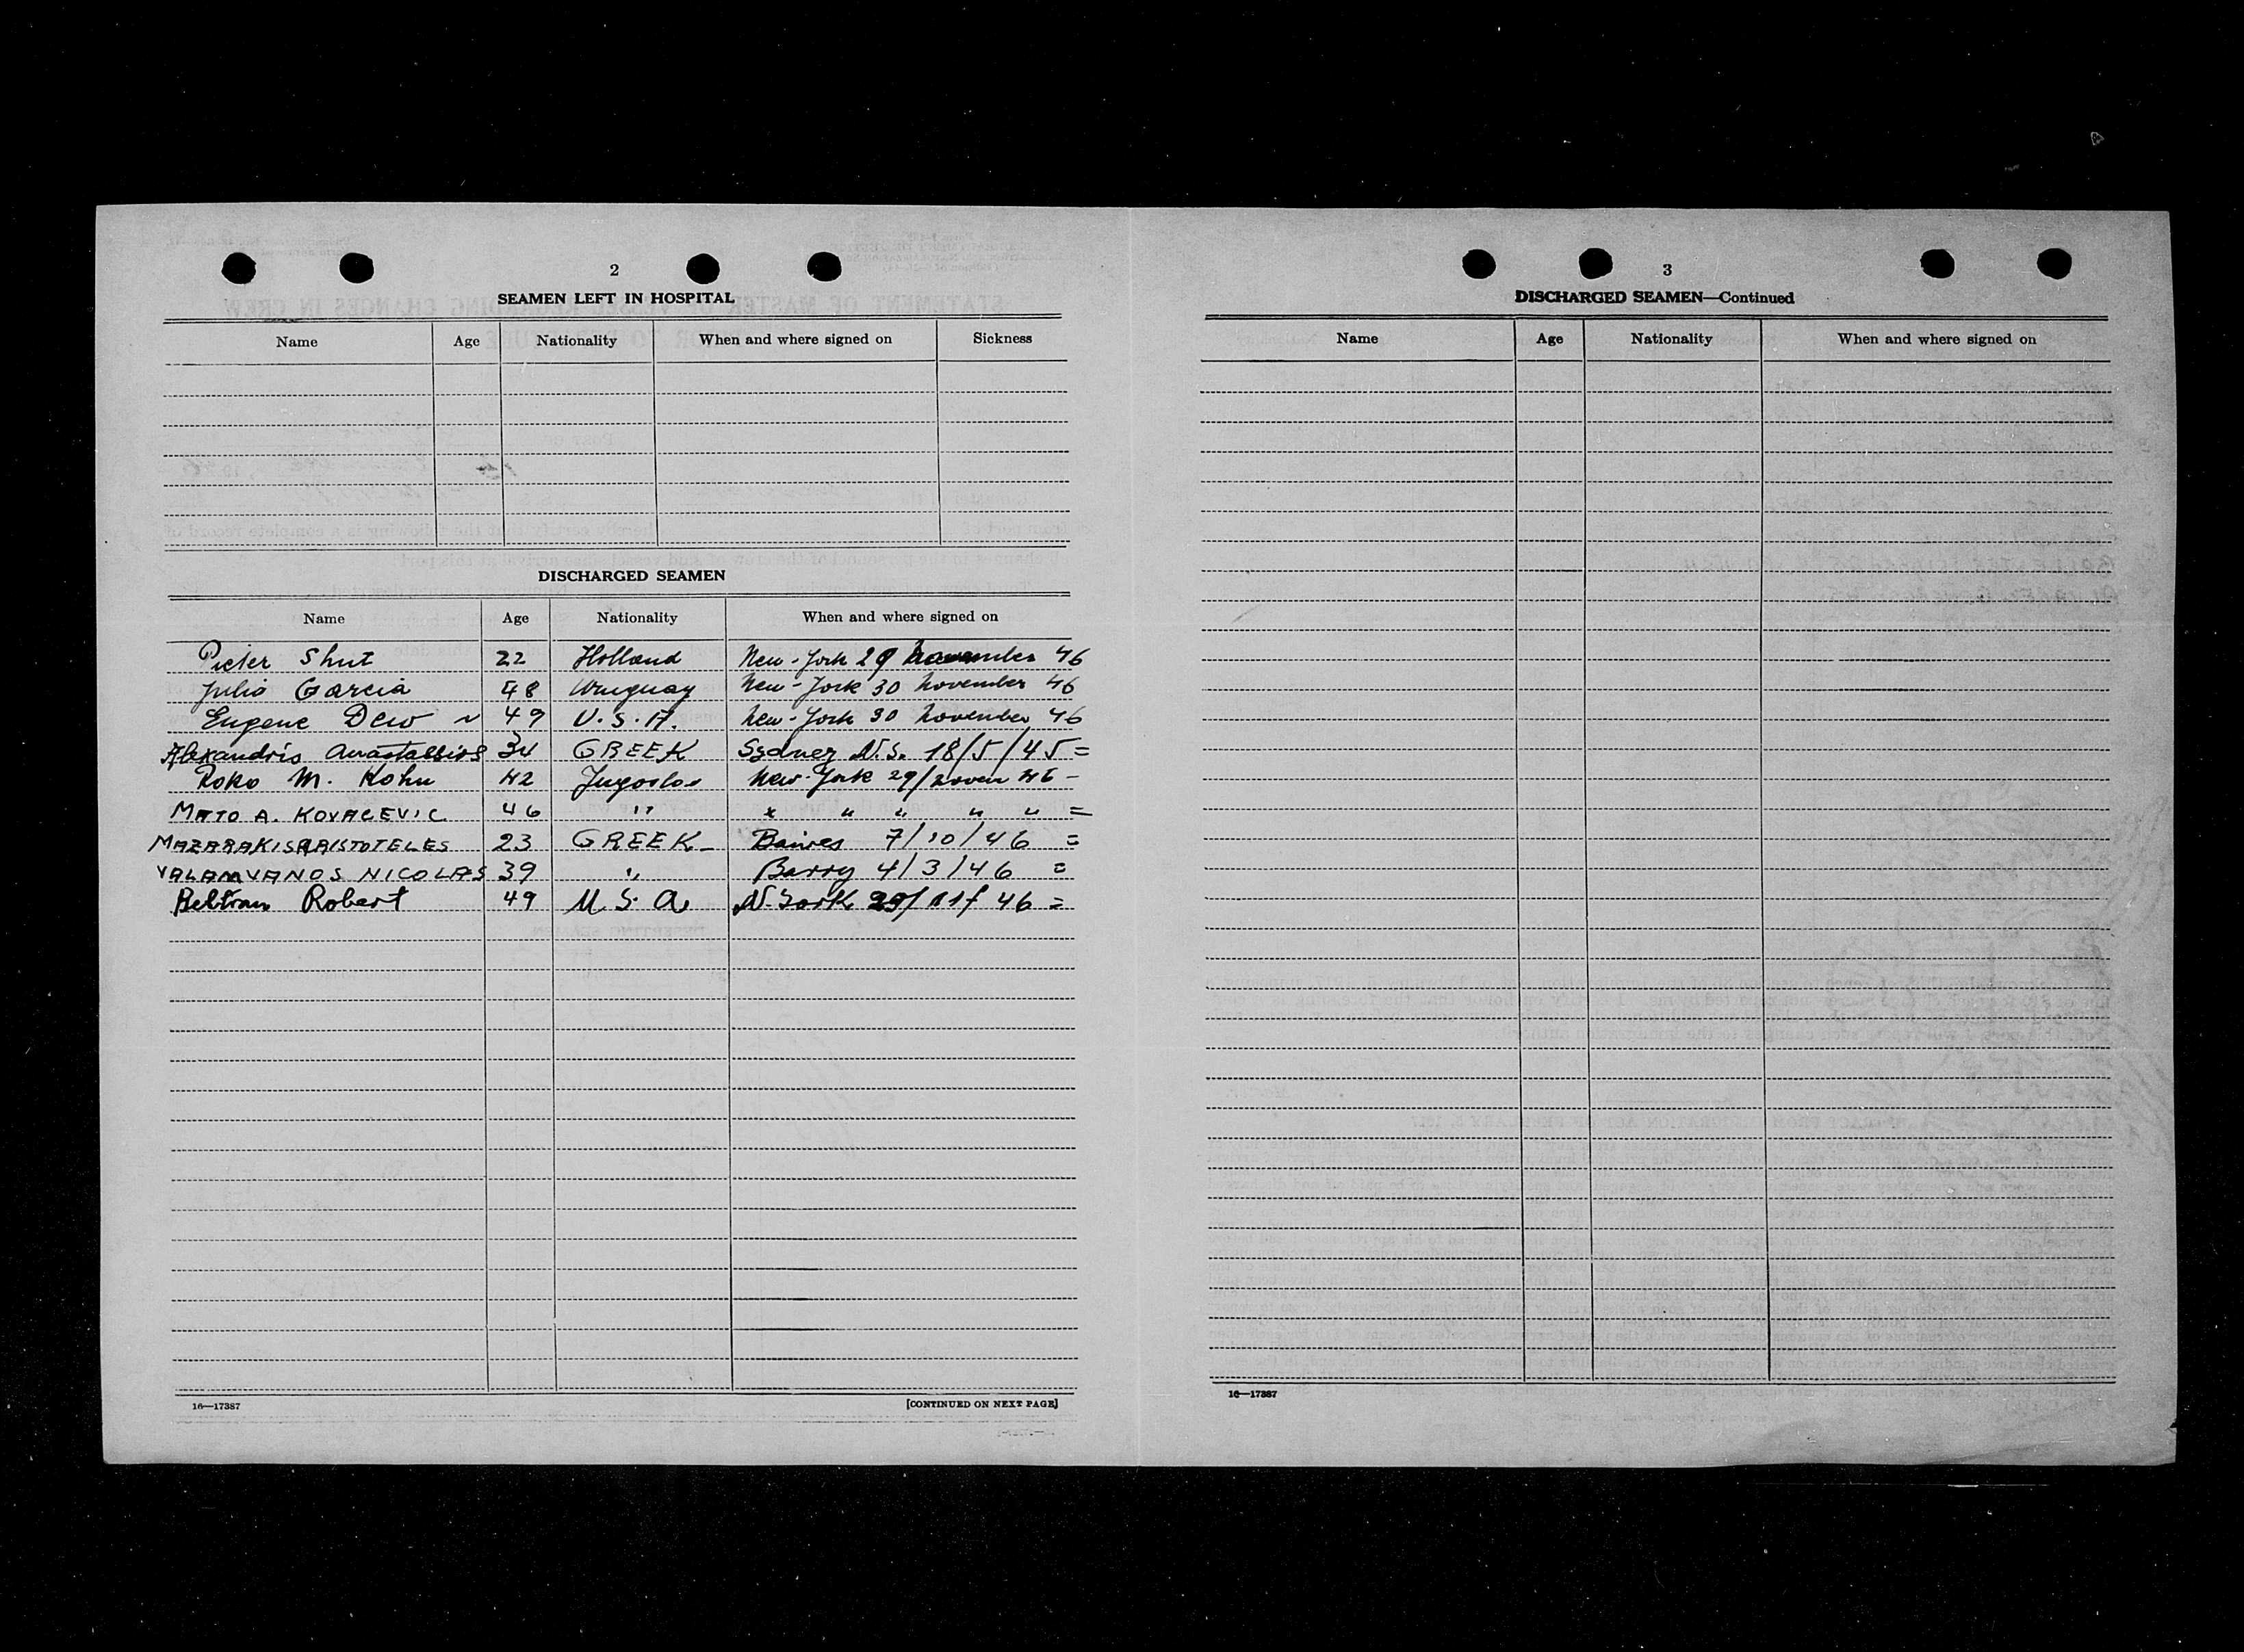 2
SEAMEN LEFT IN HOSPITAL
Name Age Nationality When and where signed on Sickness
DISCHARGED SEAMEN
Name Age Nationality When and where signed on
Pieter Shut 22 Holland New-York 29 november 46
Julio Garcia 48 Uruguay New-York 30 November 46
Eugene Dew 49 U.S.A. New-York 30 November 46
Alexandris Anastassios 34 GREEK Sydney N.S. 18/5/45 =
Roko M. Kohn 42 Jugoslav New-York 29/ 46 -
MATO A. KOVACEVIC 46 " " " " " " =
MAZARAKIS ARISTOTELES 23 GREEK - Baires 7/10/46 =
VALAMVANOS NICOLAS 39 " Barry 4/3/46 =
Beltran Robert 49 U.S.A. N-York 29/11/46 =
16—17387 [CONTINUED ON NEXT PAGE]
3
DISCHARGED SEAMEN—Continued
Name Age Nationality When and where signed on
16—17387